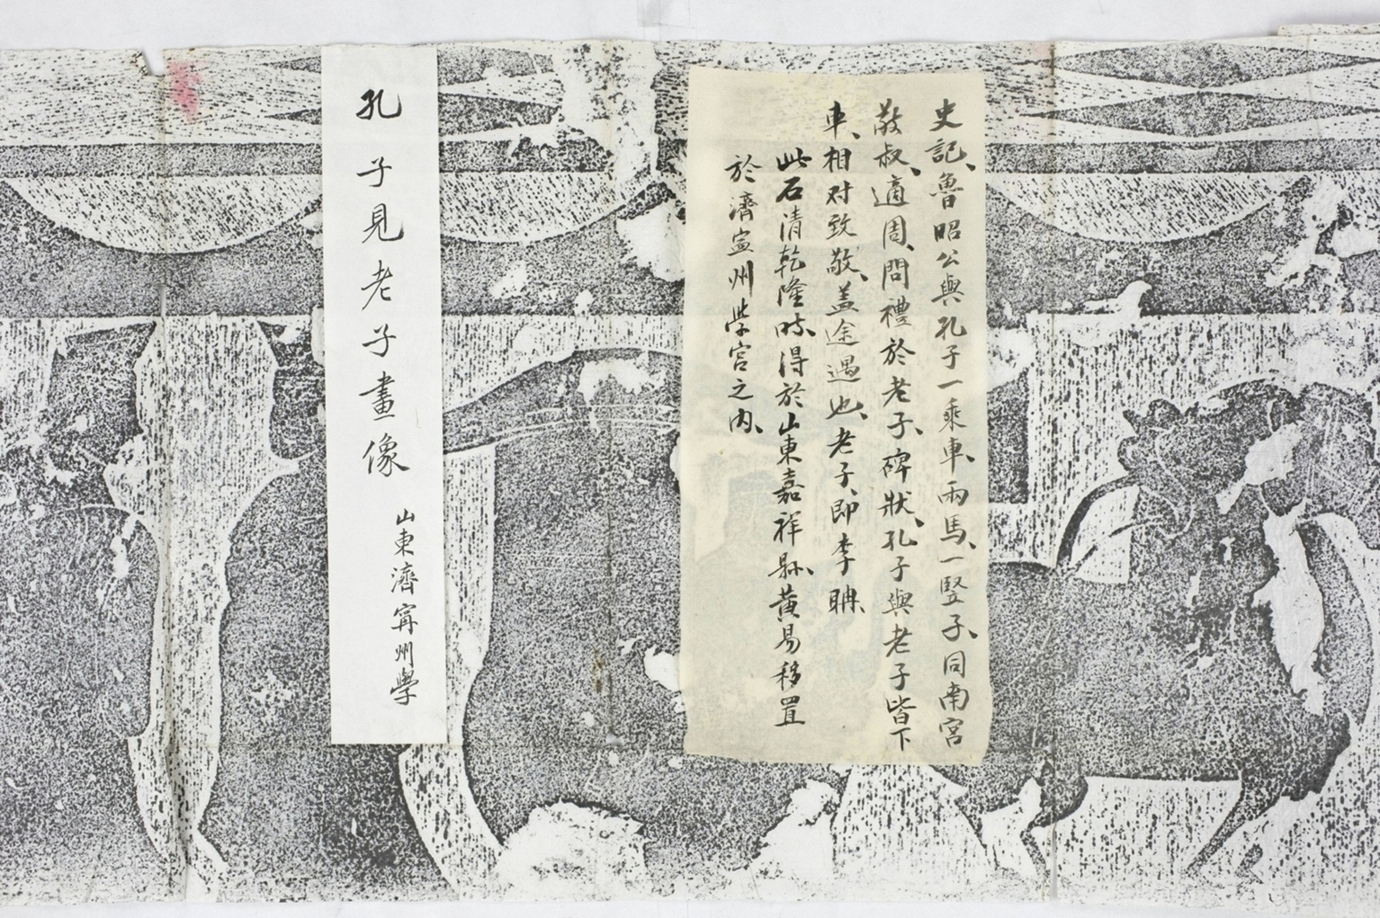 史記、魯昭公與孔子一乘車、兩馬、一豎子、同南宮
敬叔、適周、問禮於老子、碑狀、孔子與老子皆下
車、相对致敬、盖途遇也、老子、即李聃、
此石清乾隆時得於山東嘉祥縣、黄易移置
於濟寧州學宮之内、
孔子見老子畫像
山東濟甯州學